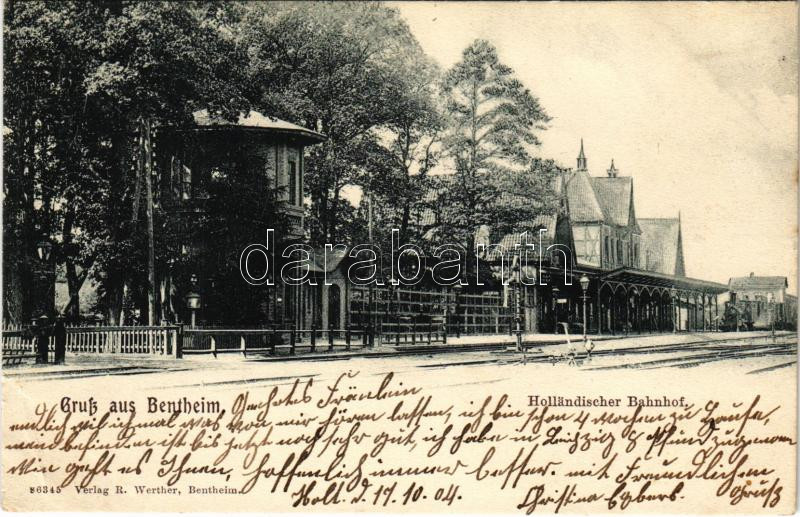 Gruß aus Bentheim.
Holländischer Bahnhof.
Geehrtes Fräulein
endlich will ich mal was von mir hören lassen, ich bin schon 4 Wochen zu Hause,
mein befinden ist bis jetzt noch sehr gut, ich habe in Leipzig 8 Pfund zugenommen
Wie geht es Ihnen, hoffenlich immer besser. mit Freundlichem Gruß
Holt. d. 17.10.04. Christina Egbers.
86345 Verlag R. Werther, Bentheim.
darabanth